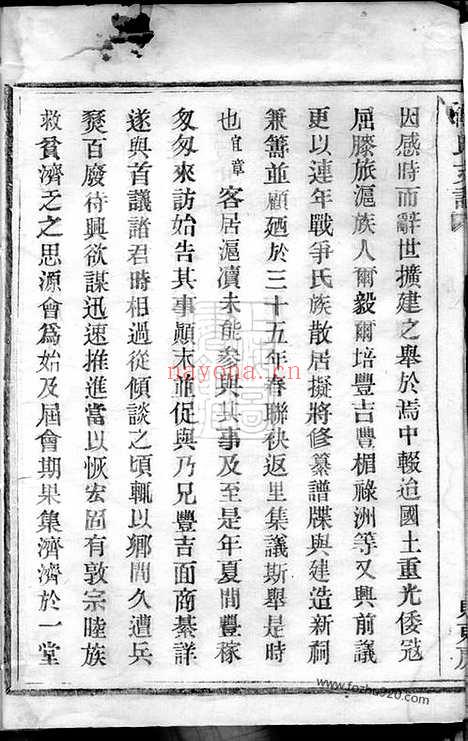 因感時而辭世擴建之舉於焉中輟迨國土重光倭冦
屈膝旅滬族人爾毅爾培豐吉豐楣祿洲等又興前議
更以連年戰爭氏族散居擬將修纂譜牒與建造新祠
兼籌並顧廼於三十五年春聯袂返里集議斯舉是時
也宜章客居滬瀆未能參與其事及至是年夏間豐稼
匆匆來訪始告其事顛末並促與乃兄豐吉面商綦詳
遂與首議諸君時相過從傾談之頃輒以鄉間久遭兵
燹百廢待興欲謀迅速推進當以恢宏固有敦宗睦族
救貧濟乏之思源會爲始及屆會期果集濟濟於一堂
nayona.cn
www.fozhu920.com